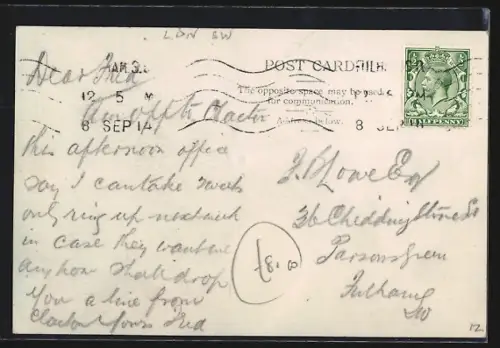 LDN SW
POST CARD
The opposite space may be used
for communication.
Address below.
12 5 M
8 SEP 14
8 SEP
HALFPENNY
Dear Fred
Am off to Clacton
this afternoon office
say I can take week
only ring up next week
in case they want me
anyhow shall drop
you a line from
Clacton Yours Fred
J. Lowe Esq
36 Cheddingstone St
Parsons Green
Fulham
SW
12.